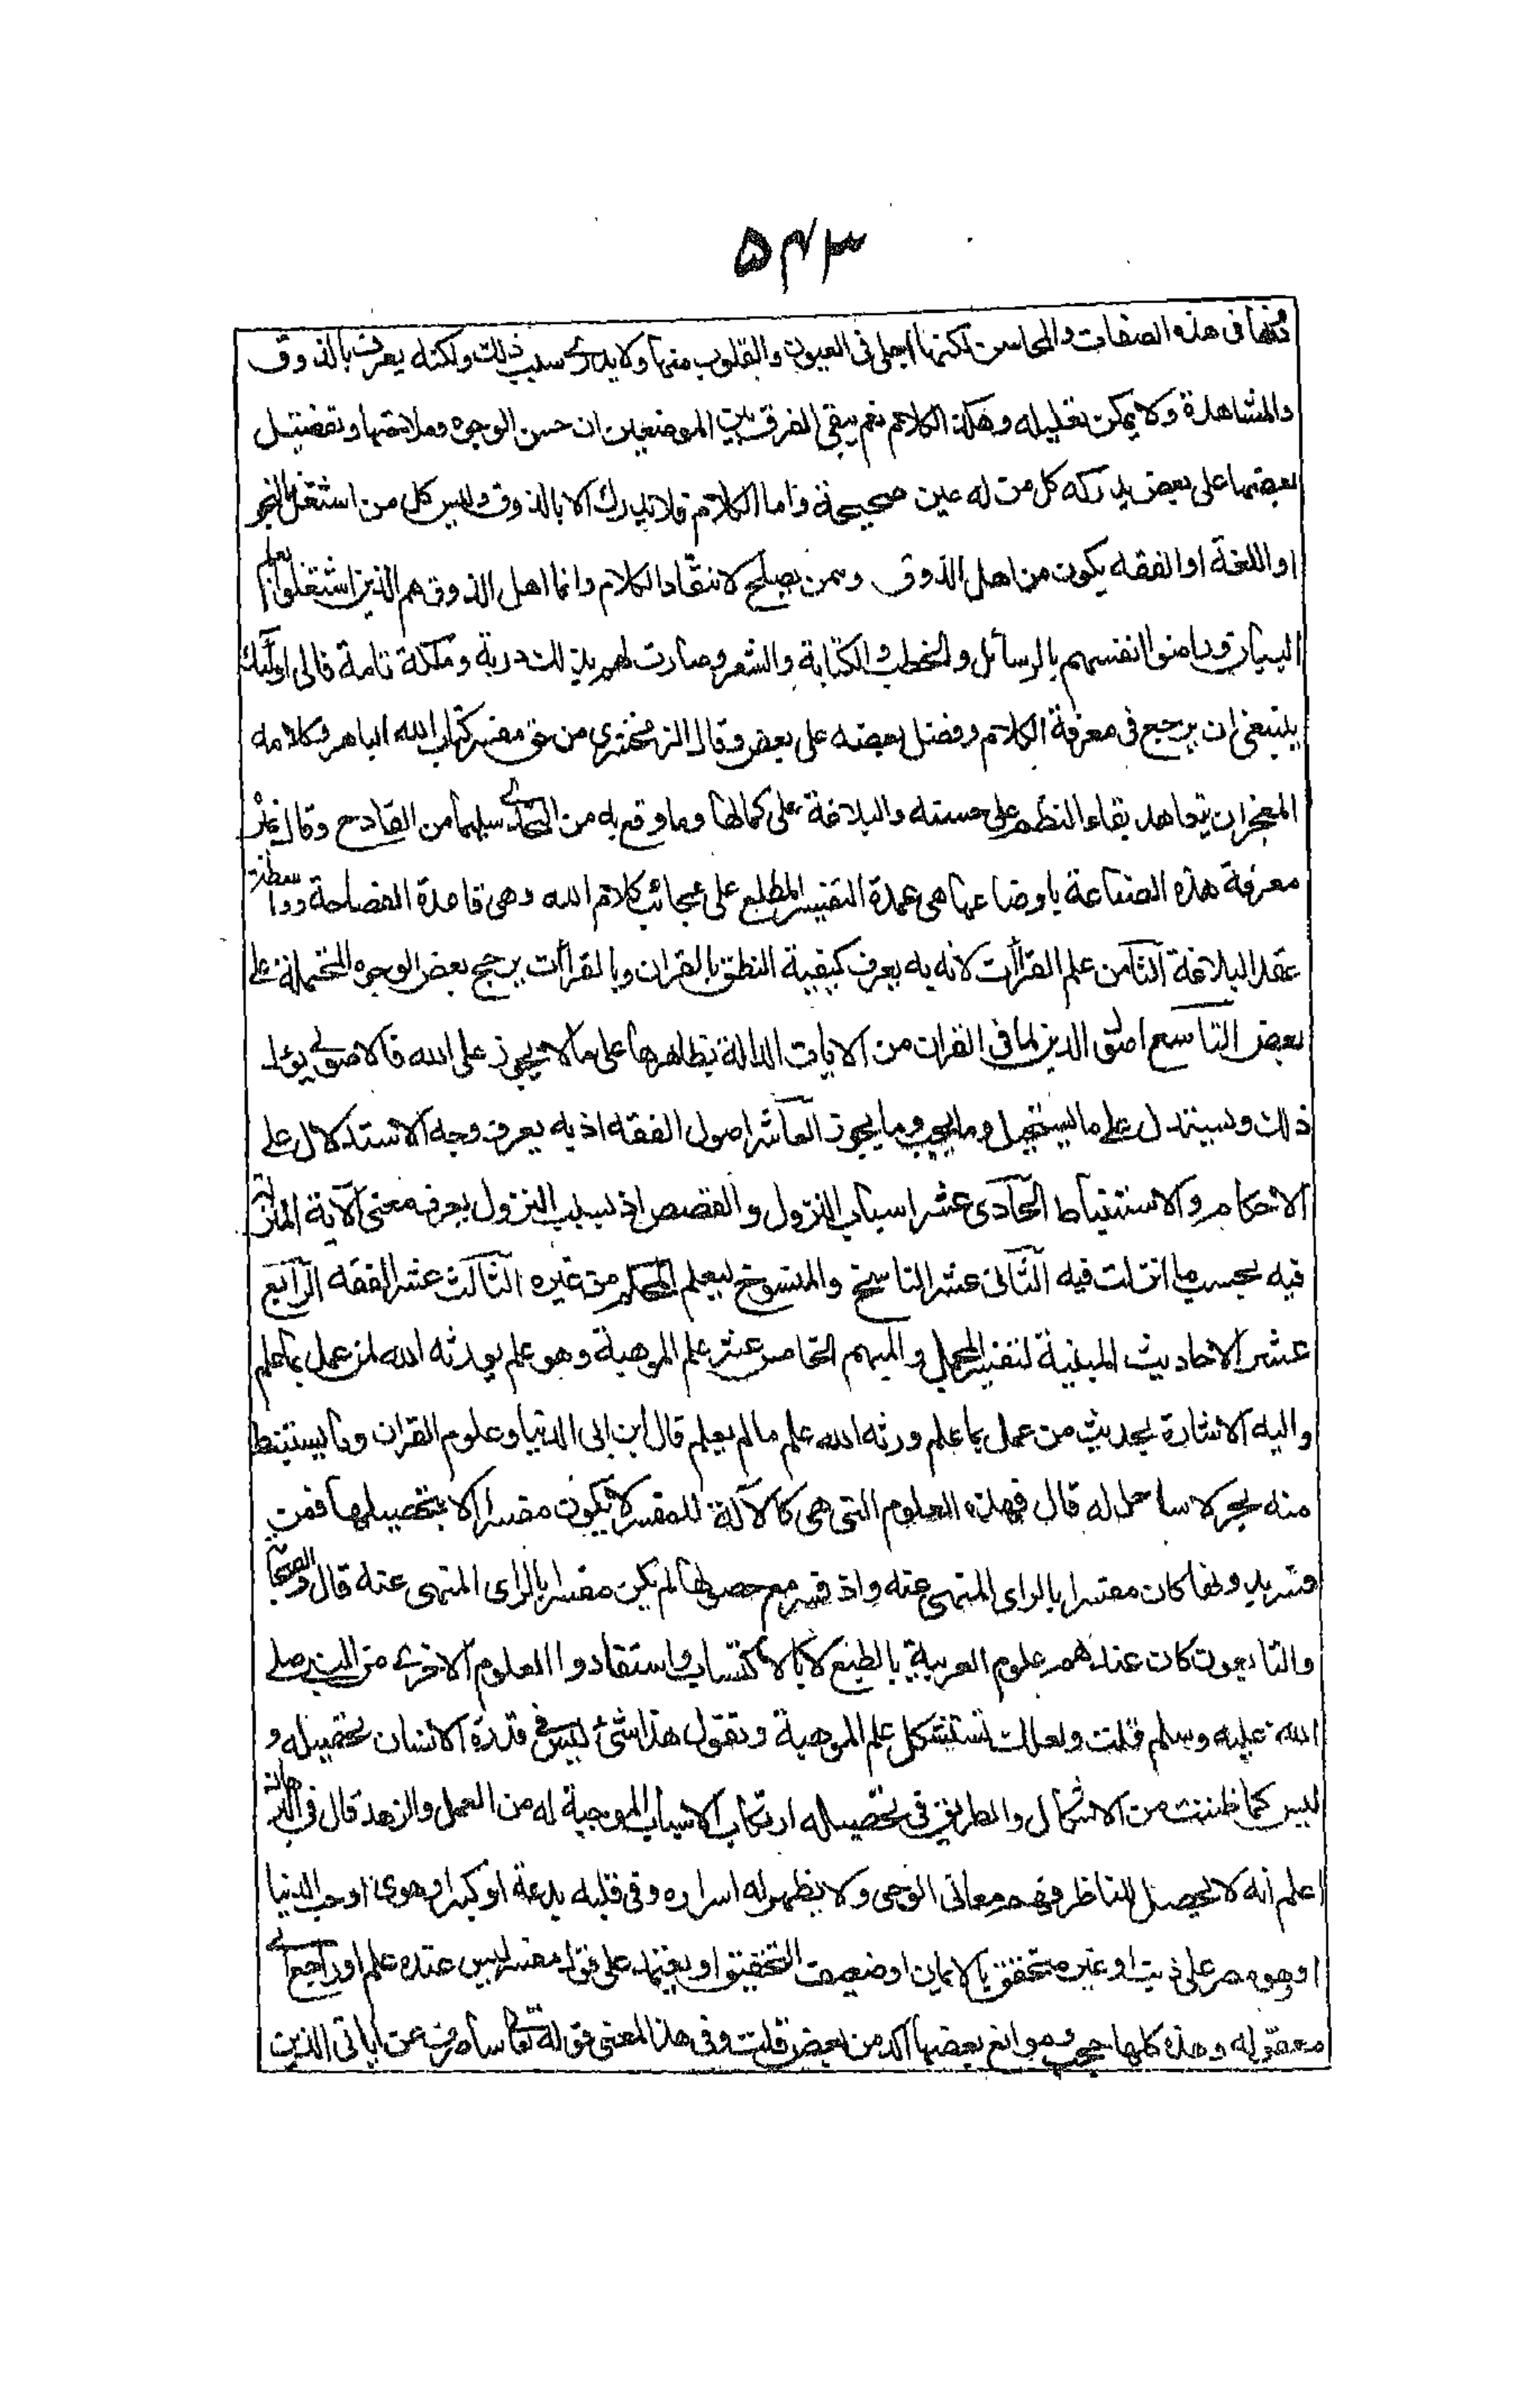 ۵۴۳
دونها فى هذه الصفات والمحاسن لكنها احلى فى العيون والقلوب منها ولا يدرى سبب ذلك ولكنه يعرف بالذوق
والمشاهدة ولا يمكن تعليله وهكذا الكلام نعم يبقى الفرق بين الموضعين ان حسن الوجوه وملاحتها وتفضيل
بعضها على بعض يدركه كل من له عين صحيحة واما الكلام فلا يدرك الا بالذوق وليس كل من اشتغل بالنحو
او اللغة او الفقه يكون من اهل الذوق وممن يصلح لانتقاد الكلام وانما اهل الذوق هم الذين اشتغلوا بعلم
البيان وراضوا انفسهم بالرسائل والخطب والكتابة والشعر وصارت لهم بذلك دربة وملكة تامة فالى اولئك
ينبغى ان يرجع فى معرفة الكلام وفضل بعضه على بعض وقال الزمخشرى من حق مفسر كتاب الله الباهر وكلامه
المعجز ان يتعاهد بقاء النظم على حسنه والبلاغة على كمالها وما وقع به من التحدى سليما من القادح وقال غيره
معرفة هذه الصناعة باوضاعها هى عمدة التفسير المطلع على عجائب كلام الله وهى قاعدة الفصاحة وواسطة
عقد البلاغة الثامن علم القراآت لانه به يعرف كيفية النطق بالقران وبالقراآت يرجح بعض الوجوه المحتملة على
بعض التاسع اصول الدين لما فى القران من الايات الدالة بظاهرها على ما لا يجوز على الله فالاصولى يؤل
ذلك ويستدل على ما يستحيل وما يجب وما يجوز العاشر اصول الفقه اذ به يعرف وجه الاستدلال على
الاحكام والاستنباط الحادى عشر اسباب النزول والقصص اذ بسبب النزول يعرف معنى الآية المنزلة
فيه بحسب ما انزلت فيه الثانى عشر الناسخ والمنسوخ ليعلم المحكم من غيره الثالث عشر الفقه الرابع
عشر الاحاديث المبنية لتفسير المجمل والمبهم الخامس عشر علم الموهبة وهو علم يورثه الله لمن عمل بما علم
واليه الاشارة بحديث من عمل بما علم ورثه الله علم ما لم يعلم قال ابن ابى الدنيا وعلوم القران وما يستنبط
منه بحر لا ساحل له قال فهذه العلوم التى هى كالآلة للمفسر لا يكون مفسرا الا بتحصيلها فمن
فسر بدونها كان مفسرا بالراى المنهى عنه واذ فسر مع حصولها لم يكن مفسرا بالراى المنهى عنه قال والصحابة
والتابعون كان عندهم علوم العربية بالطبع لا بالاكتساب واستفادوا العلوم الاخرى من النبى صلى
الله عليه وسلم قلت ولعلك تستشكل علم الموهبة وتقول هذا شئ ليس فى قدرة الانسان تحصيله و
ليس كما ظننت من الاشكال والطريق فى تحصيله ارتكاب الاسباب الموجبة له من العمل والزهد قال فى البرهان
اعلم انه لا يحصل للناظر فهم معانى الوحى ولا يظهر له اسراره وفى قلبه بدعة او كبر او هوى او حب الدنيا
او هو مصر على ذنب او غير متحقق بالايمان او ضعيف التحقيق او يعتمد على قول مفسر ليس عنده علم او راجع الى
معقوله وهذه كلها حجب وموانع بعضها آكد من بعض قلت وفى هذا المعنى قوله تعالى ساصرف عن اياتى الذين